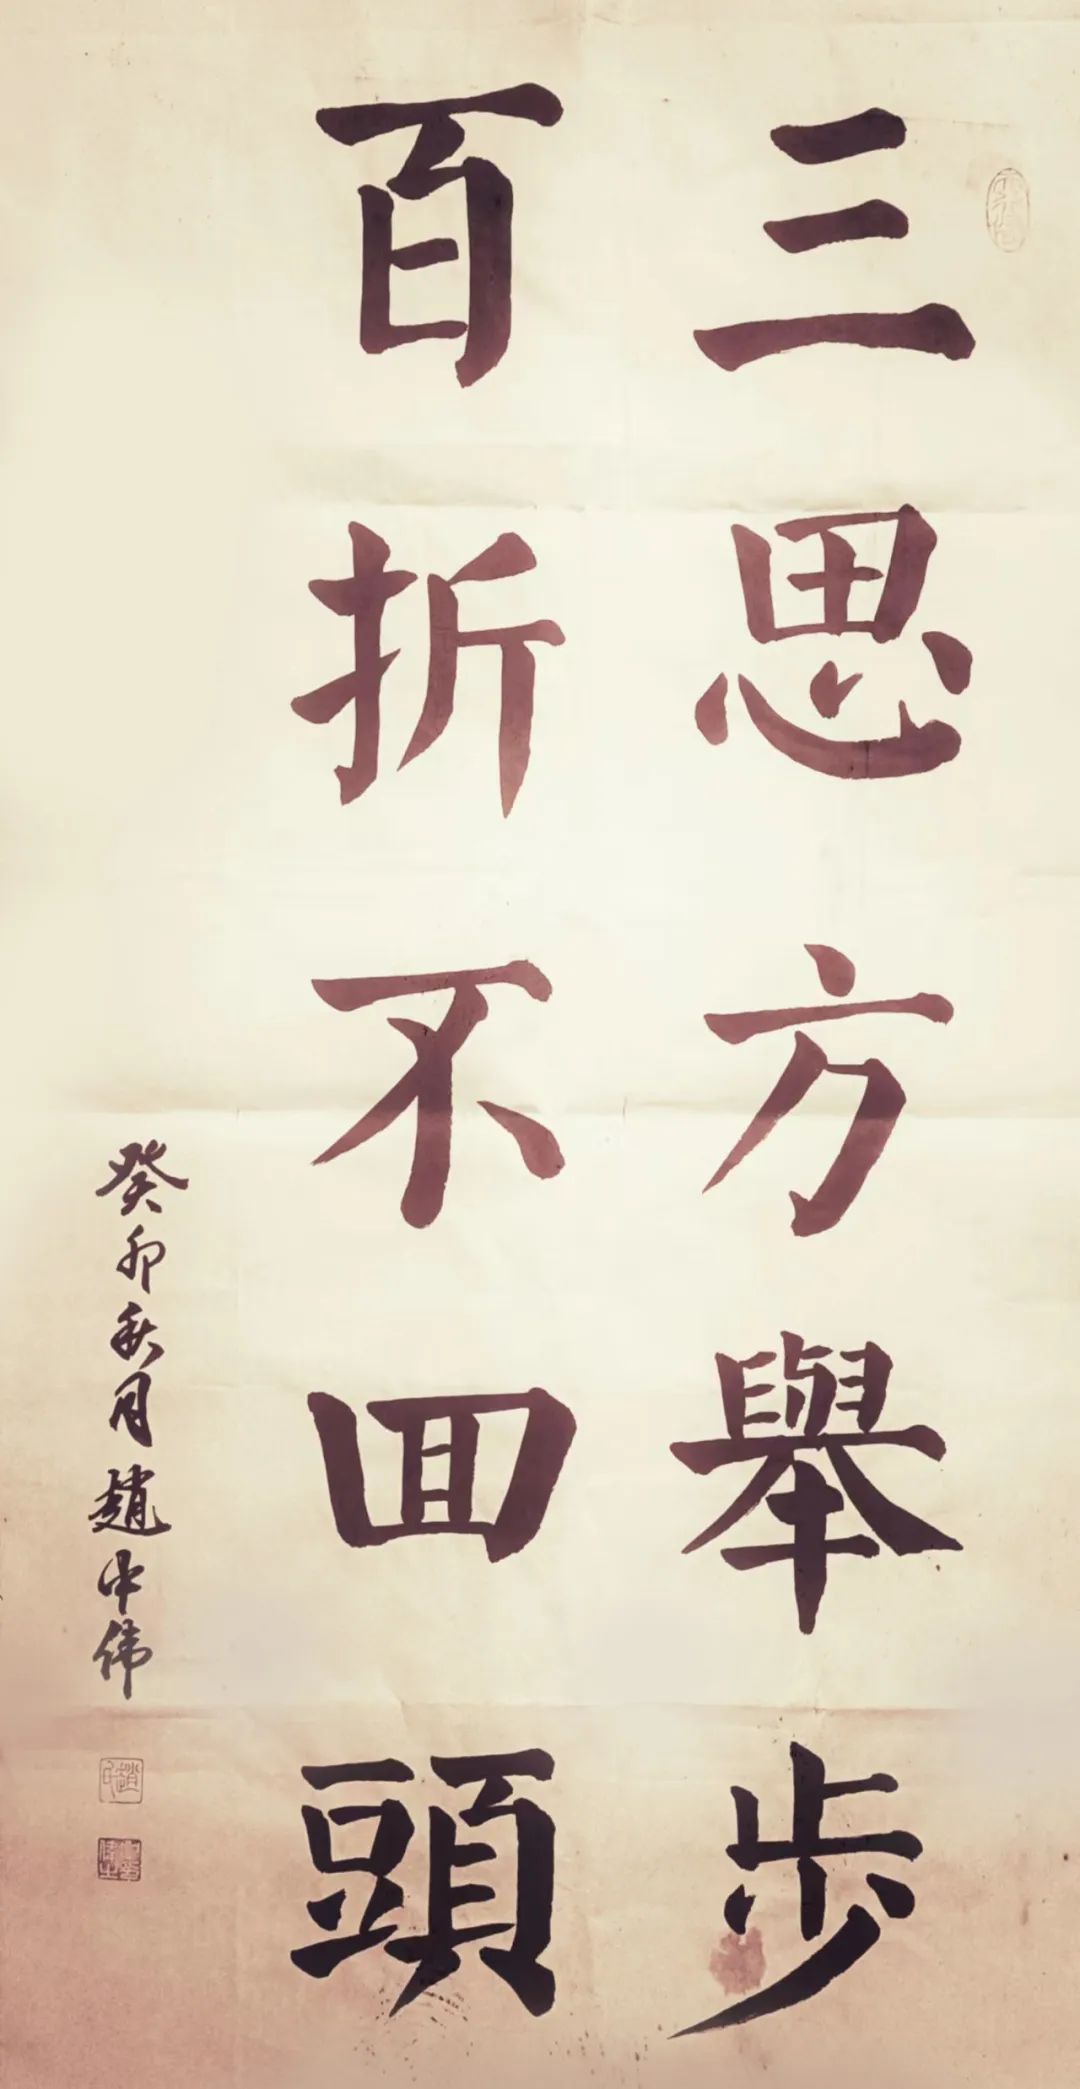 三思方舉步
百折不回頭
癸卯秋月趙中偉